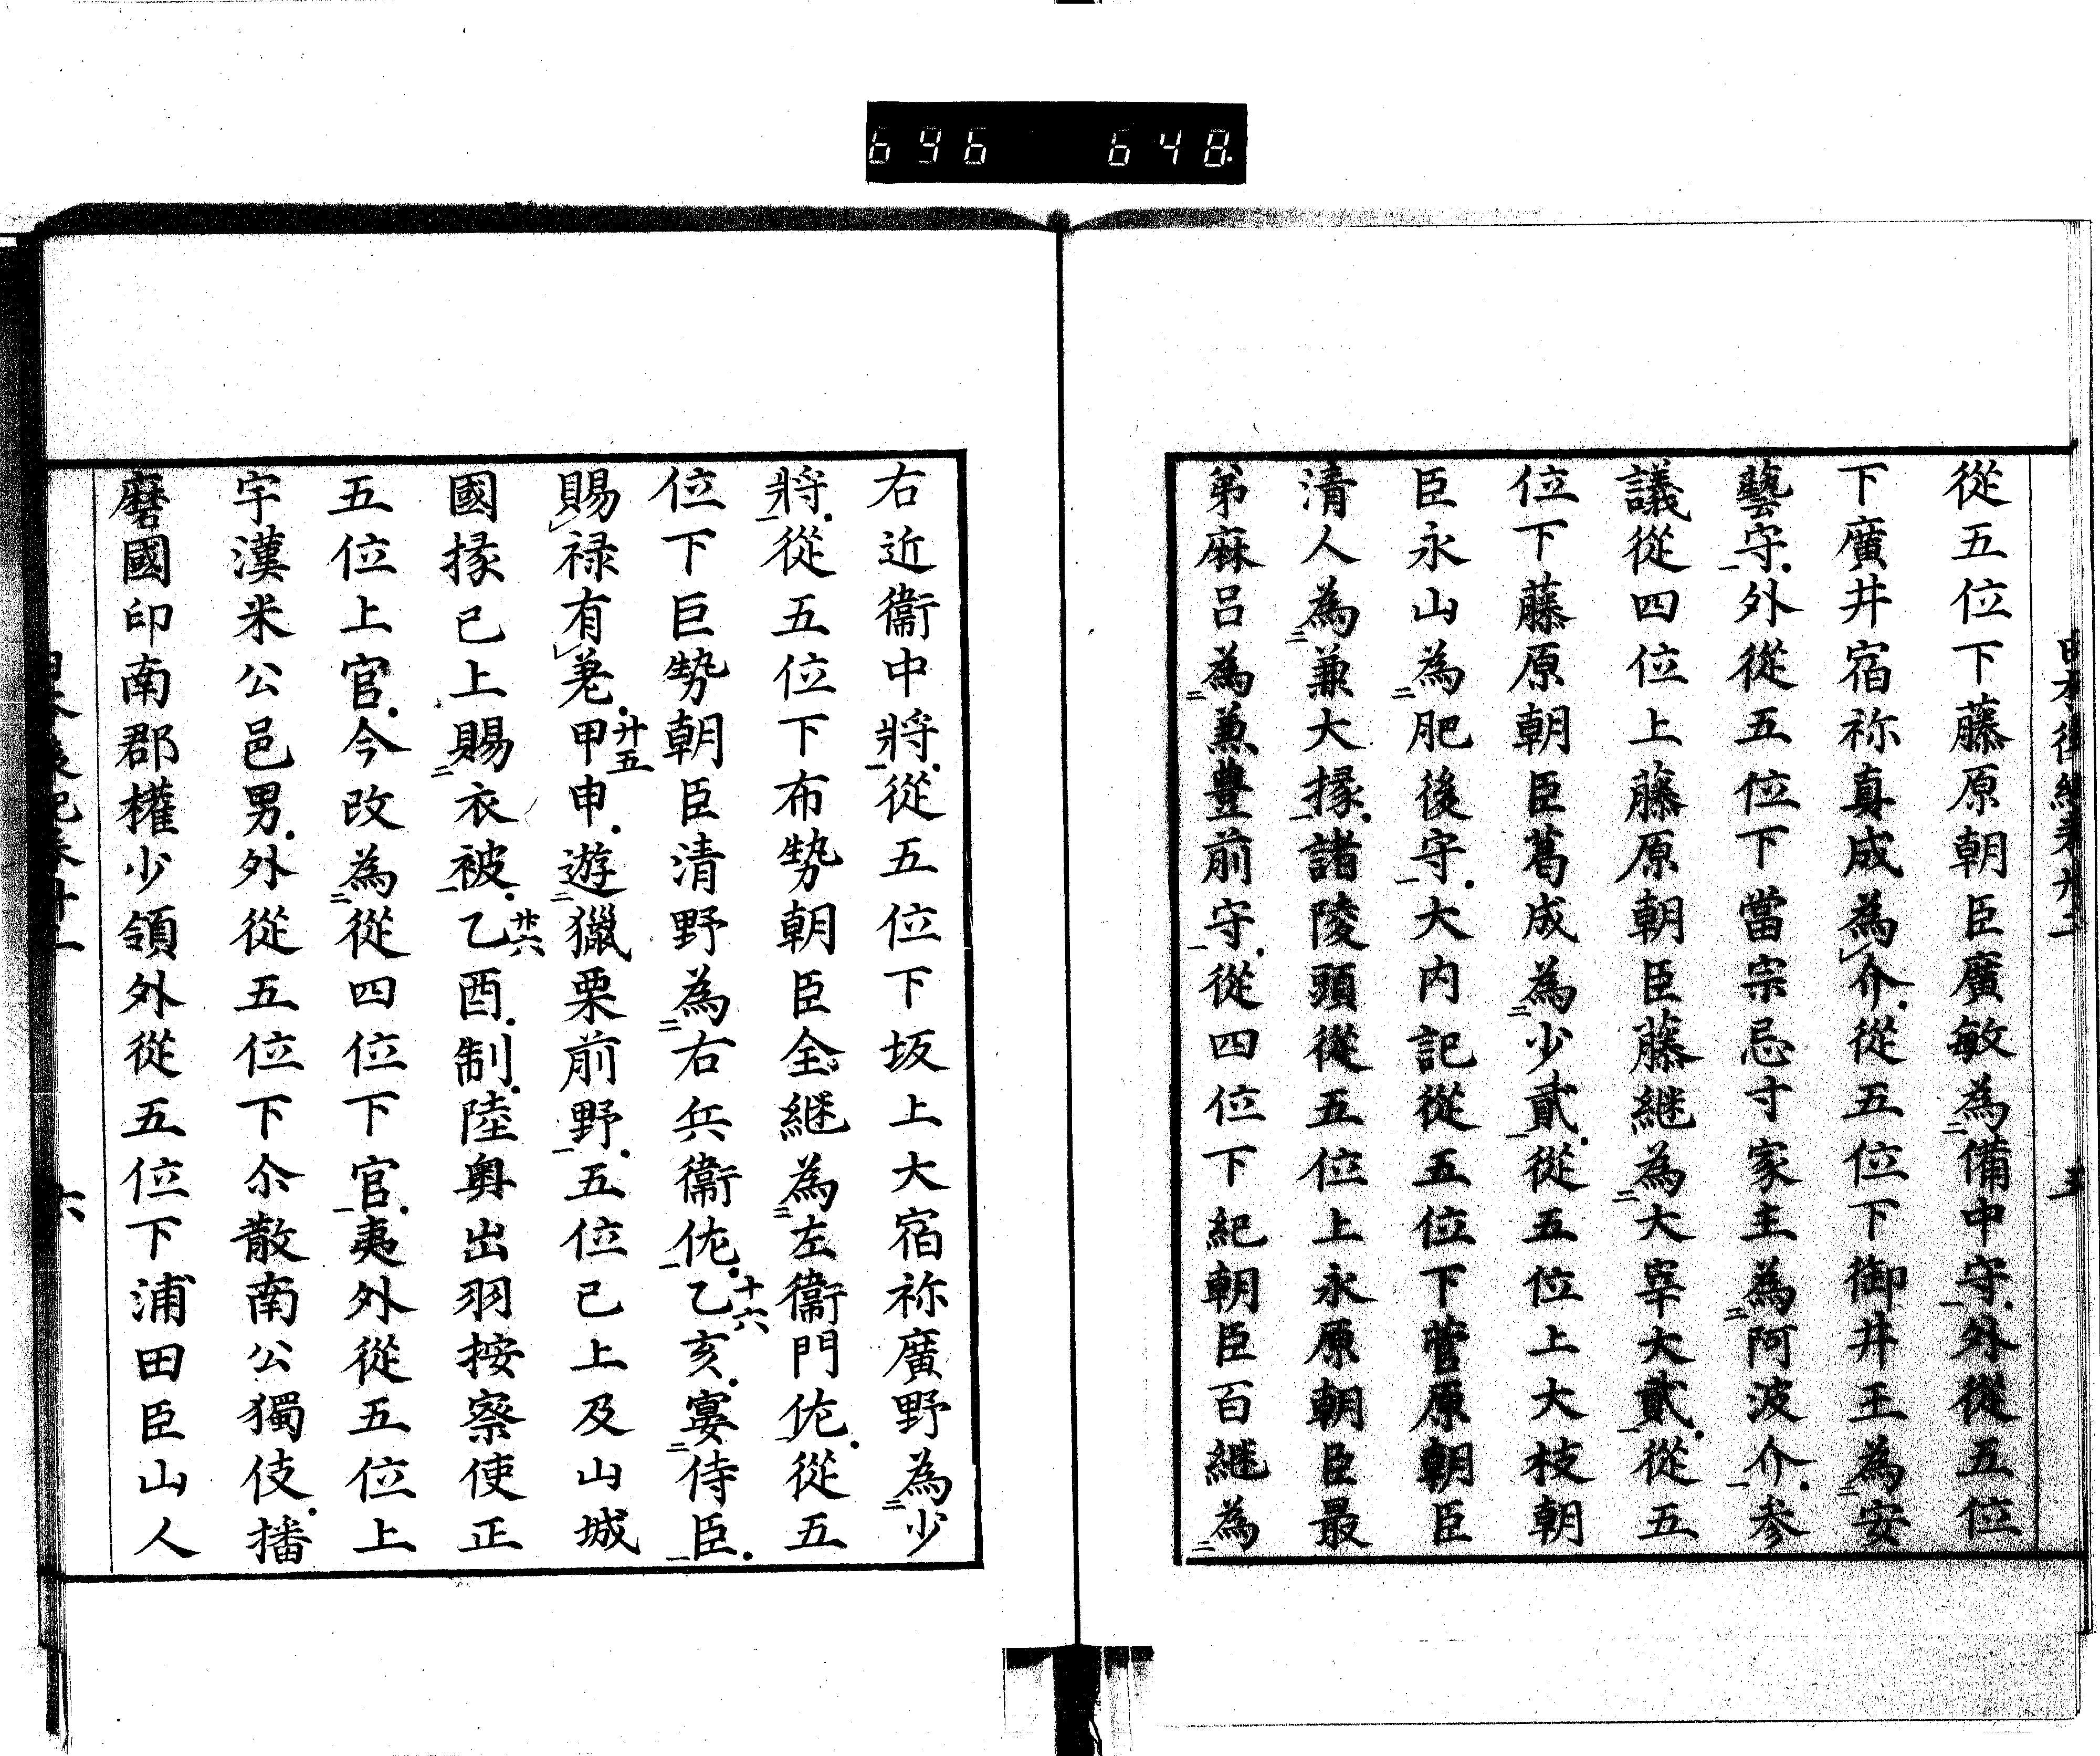 696 648
從五位下藤原朝臣廣敏為備中守外從五位
下廣井宿祢真成為介從五位下御井王為安
藝守外從五位下當宗忌寸家主為阿波介参
議從四位上藤原朝臣藤継為大宰大貳從五
位下藤原朝臣葛成為少貳從五位上大枝朝
臣永山為肥後守大内記從五位下菅原朝臣
清人為兼大掾諸陵頭從五位上永原朝臣最
弟麻呂為兼豊前守從四位下紀朝臣百継為
五
右近衞中將從五位下坂上大宿祢廣野為少
將從五位下布勢朝臣全継為左衞門佐從五
位下巨勢朝臣清野為右兵衞佐乙亥十六宴侍臣
賜禄有差甲申廿五遊獵栗前野五位已上及山城
國掾已上賜衣被乙酉廿六制陸奥出羽按察使正
五位上官今改為從四位下官夷外從五位上
宇漢米公邑男外從五位下尒散南公獨伎播
磨國印南郡權少領外從五位下浦田臣山人
六